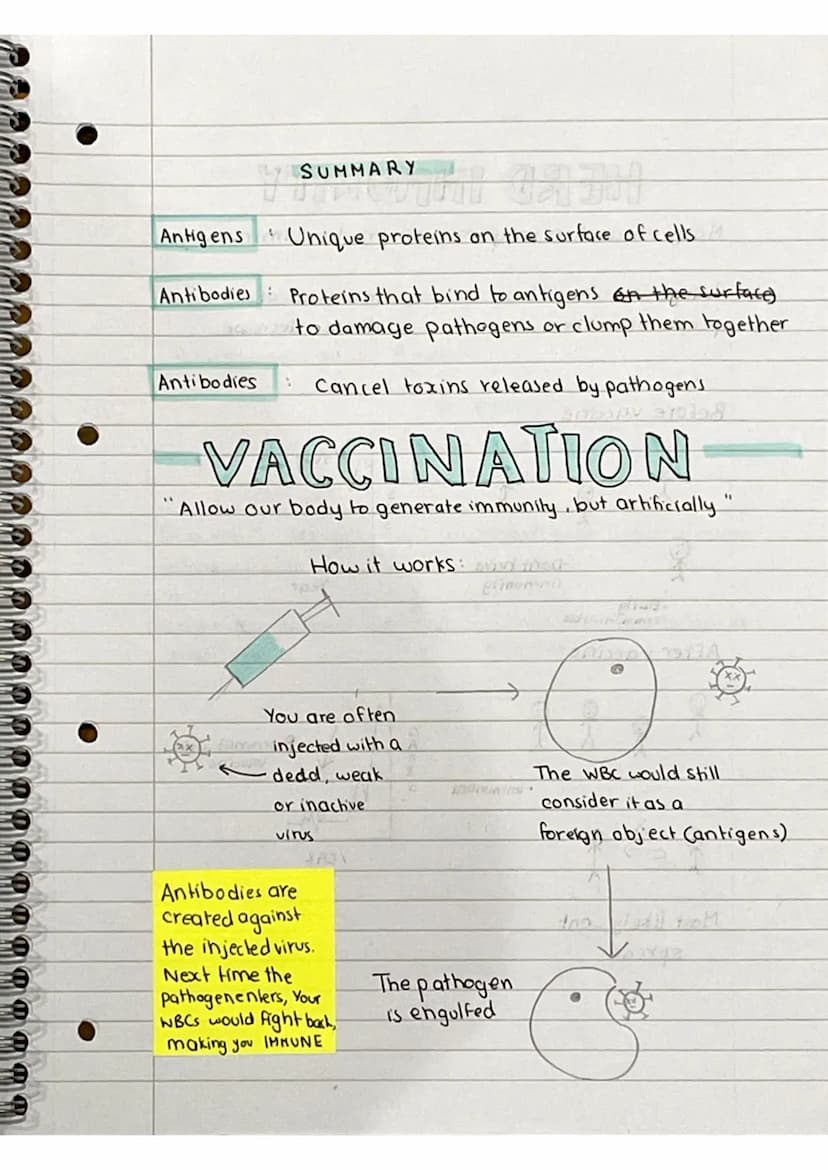 SUMMARY
Antigens : Unique proteins on the surface of cells
Antibodies : Proteins that bind to antigens on the surface
to damage pathogens or clump them together
Antibodies : Cancel toxins released by pathogens
VACCINATION
"Allow our body to generate immunity, but artificially"
How it works:
You are often
injected with a
dedd, weak
or inachive
virus
The WBC would still
consider it as a
foreign object (antigens)
The pathogen
is engulfed
Antibodies are
created against
the injected virus.
Next time the
pathogen enters, your
WBCs would fight back,
making you IMMUNE